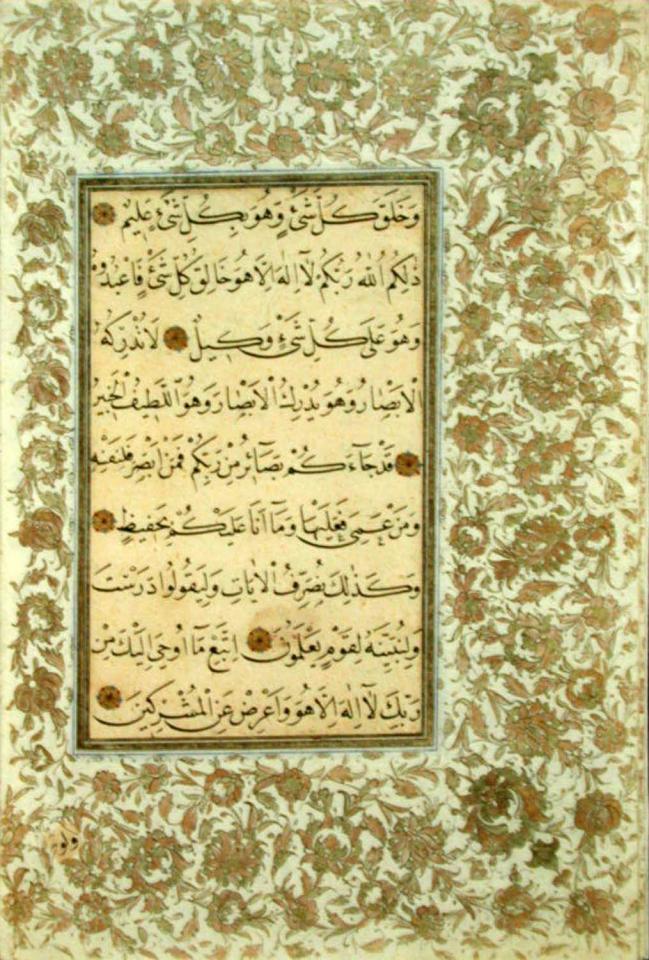 وَخَلَقَ كُلَّ شَیْءٍ وَهُوَ بِكُلِّ شَیْءٍ عَلِيمٌ
ذٰلِكُمُ اللّٰهُ رَبُّكُمْ لَآ اِلٰهَ اِلَّا هُوَ خَالِقُ كُلِّ شَیْءٍ فَاعْبُدُوهُ
وَهُوَ عَلٰى كُلِّ شَیْءٍ وَكِيلٌ لَا تُدْرِكُهُ
الْاَبْصَارُ وَهُوَ يُدْرِكُ الْاَبْصَارَ وَهُوَ اللَّطِيفُ الْخَبِيرُ
قَدْ جَآءَكُمْ بَصَآئِرُ مِنْ رَبِّكُمْ فَمَنْ اَبْصَرَ فَلِنَفْسِهٖ
وَمَنْ عَمِیَ فَعَلَيْهَا وَمَآ اَنَا عَلَيْكُمْ بِحَفِيظٍ
وَكَذٰلِكَ نُصَرِّفُ الْاٰيَاتِ وَلِيَقُولُوا دَرَسْتَ
وَلِنُبَيِّنَهُ لِقَوْمٍ يَعْلَمُونَ اِتَّبِعْ مَآ اُوحِیَ اِلَيْكَ مِنْ
رَبِّكَ لَآ اِلٰهَ اِلَّا هُوَ وَاَعْرِضْ عَنِ الْمُشْرِكِينَ
ولو